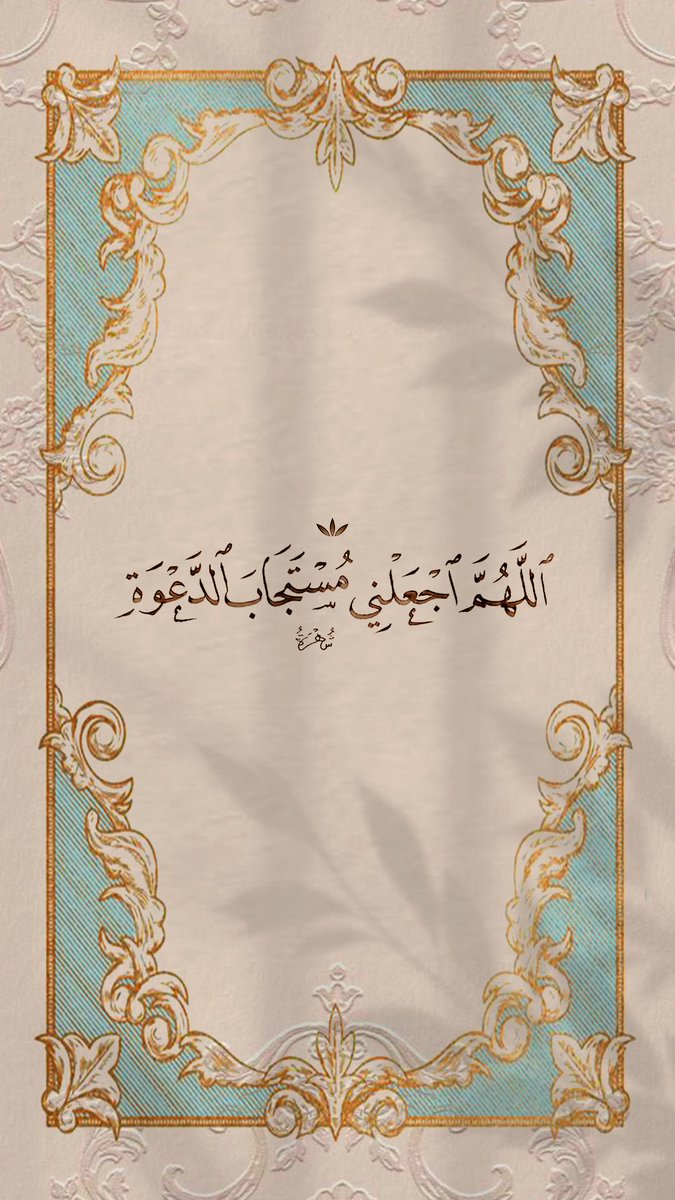 ٱللَّهُمَّ ٱجْعَلْنِي مُسْتَجَابَ ٱلدَّعْوَةِ